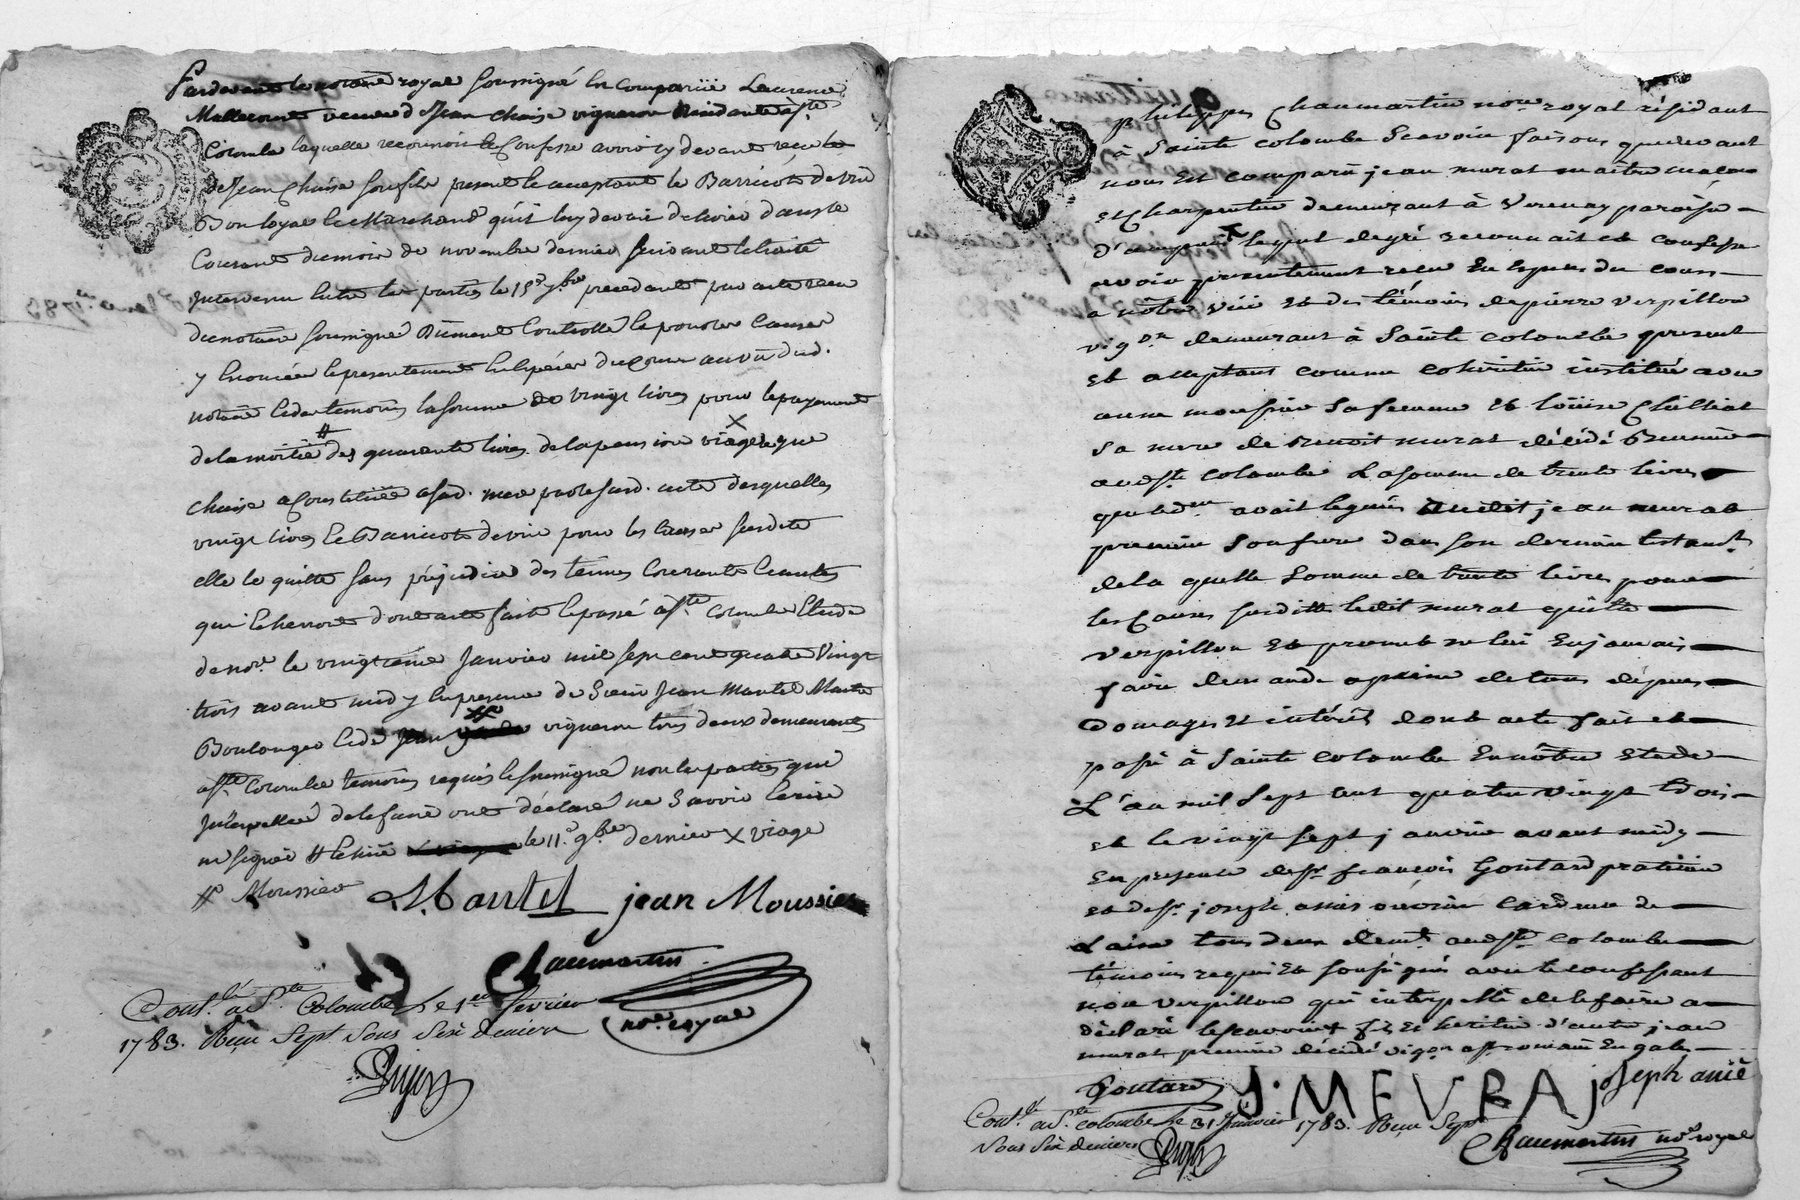 Pardevant le notaire royal soussigné En Compariue Laurence
Mallecourt veuve de Jean Chaise vigneron Residante à Ste
Colombe laquelle reconnoit & Confesse avoir cy devant recu
de Jean Chaise son fils present & acceptant le Barricots de vin
Bon loyal & Marchand qu'il luy devoit delivrer dans le
Courant du mois de novembre dernier suivant le traité
Intervenu Entre les parties le 15e 9bre precedant par acte recu
du notaire soussigné Düement Controllé & pour les Causes
y Enoncées & presentement En Especes du Cours au vü dud.
notaire & des temoins la somme de vingt livres pour le payement
de la moitié # des quarante livres de la pension viagere X que
Chaise a Constituée a sad. mere par le susd. acte desquelles
vingt livres & Baricots de vin pour les Causes susdites
elle le quitte sans préjudice des termes Courants & autes
qui Echerront dont acte fait & passé à Ste Colombe Etude
de nore le vingt Janvier mil sept cent quatre Vingt
trois avant midy En presence de Sieur Jean Mantel Maitre
Boulanger & de Jean vigneron tous deux demeurants
à Ste Colombe temoins requis & soussignés non les parties qui
Interpellées de le faire ont déclaré ne Savoir Ecrire
ni signer # Echue le 11e 9bre dernier X viage
Moussier
Mantel jean Moussier
Chaumartin
nore royal
Contlé à Ste Colombe le 1er fevrier
1783. Reçu Sept Sous Six Deniers
philippes Chaumartin nore royal résidant
à Sainte Colombe Scavoir faisons que devant
nous Est comparu jean murat maitre maçon
et Charpentier demeurant à Verenay paroisse
d'ampuis lequel de gré reconnait et confesse
avoir presentement recu En Especes du cours
a nôtre vüe Et des témoins de pierre verpillon
vigon demeurant à Sainte colombe present
Et acceptant comme cohéritier institué avec
anne moussier Sa femme Et loüise
Sa mere de Benoit murat décédé
aud. Ste Colombe La somme de trente livres
que led. avait legués audit jean murat
premier Son frere dans Son dernier testamt
de la quelle Somme de trente livres pour
les Causes Susdittes ledit murat quitte
verpillon Et promet ne lui En jamais
faire demande apeine de tous dépens
Domages Et intérêts dont acte fait et
passé à Sainte Colombe En nôtre Etude
L'an mil Sept cent quatre vingt trois
et le vingt Sept janvier avant midy
En presence de Sr françois Goutard praticien
et de Sr joseph anier ouvrier Cardeur de
Laine tous deux demts aud. Ste Colombe
témoins requis Et Soussignés avec le confessant
non verpillon qui interpellé de le faire a
déclaré ne scavoir fils Et heritier d'autre jean
murat premier décédé vigon à St romain En gal
Goutard J. MEVRA joseph anié
Contlé à Ste Colombe le 31 Janvier 1783. Reçu Sept
Sous Six Deniers
Chaumartin nore royal